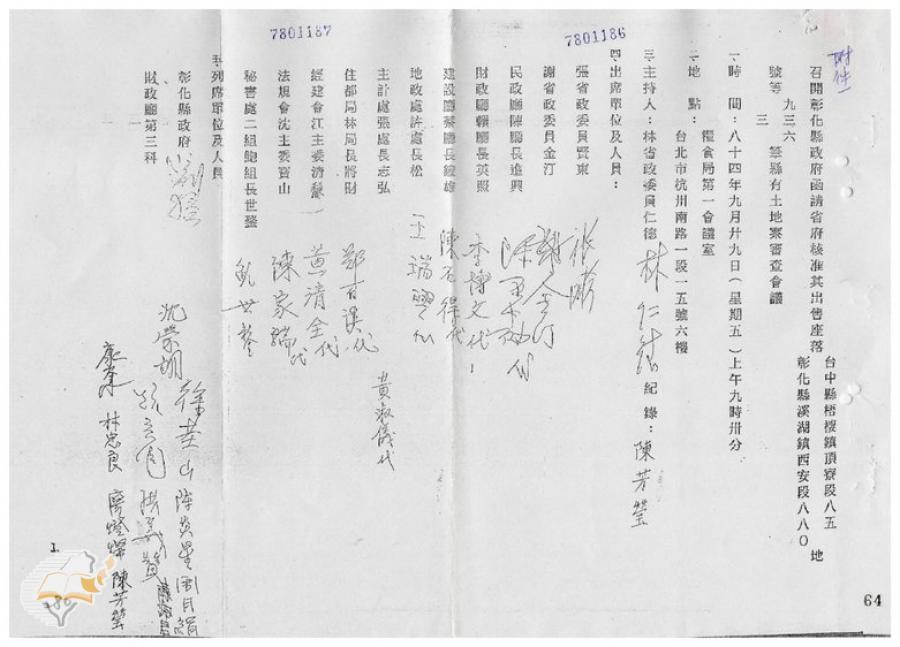 附件一
7801186
7801187
召開彰化縣政府函請省府核准其出售座落
台中縣梧棲鎮頂寮段八五
彰化縣溪湖鎮西安段八八〇
地
號等
九三六
三
筆縣有土地案審查會議
一時　間：八十四年九月廿九日（星期五）上午九時卅分
二地　點：
糧食局第一會議室
台北市杭州南路一段一一五號六樓
三主持人：林省政委員仁德　林仁德　紀錄：陳芳瑩
四出席單位及人員：
張省政委員賢東
謝省政委員金汀　謝金汀
民政廳陳廳長進興
財政廳賴廳長英照　李博文代
建設廳蔡廳長鐘雄　陳石得代
地政處許處長松　王瑞
主計處張處長志弘　黃淑儀代
住都局林局長將財　鄭百溪代
經建會江主委清馦　黃清全代
法規會沈主委寶山　陳家瑞代
秘書處二組鮑組長世鏊　鮑世鏊
五列席單位及人員
彰化縣政府
財政廳第三科
沈榮
陳炎星　周月絹
林忠良　廖燈燦　陳芳瑩
1.
64